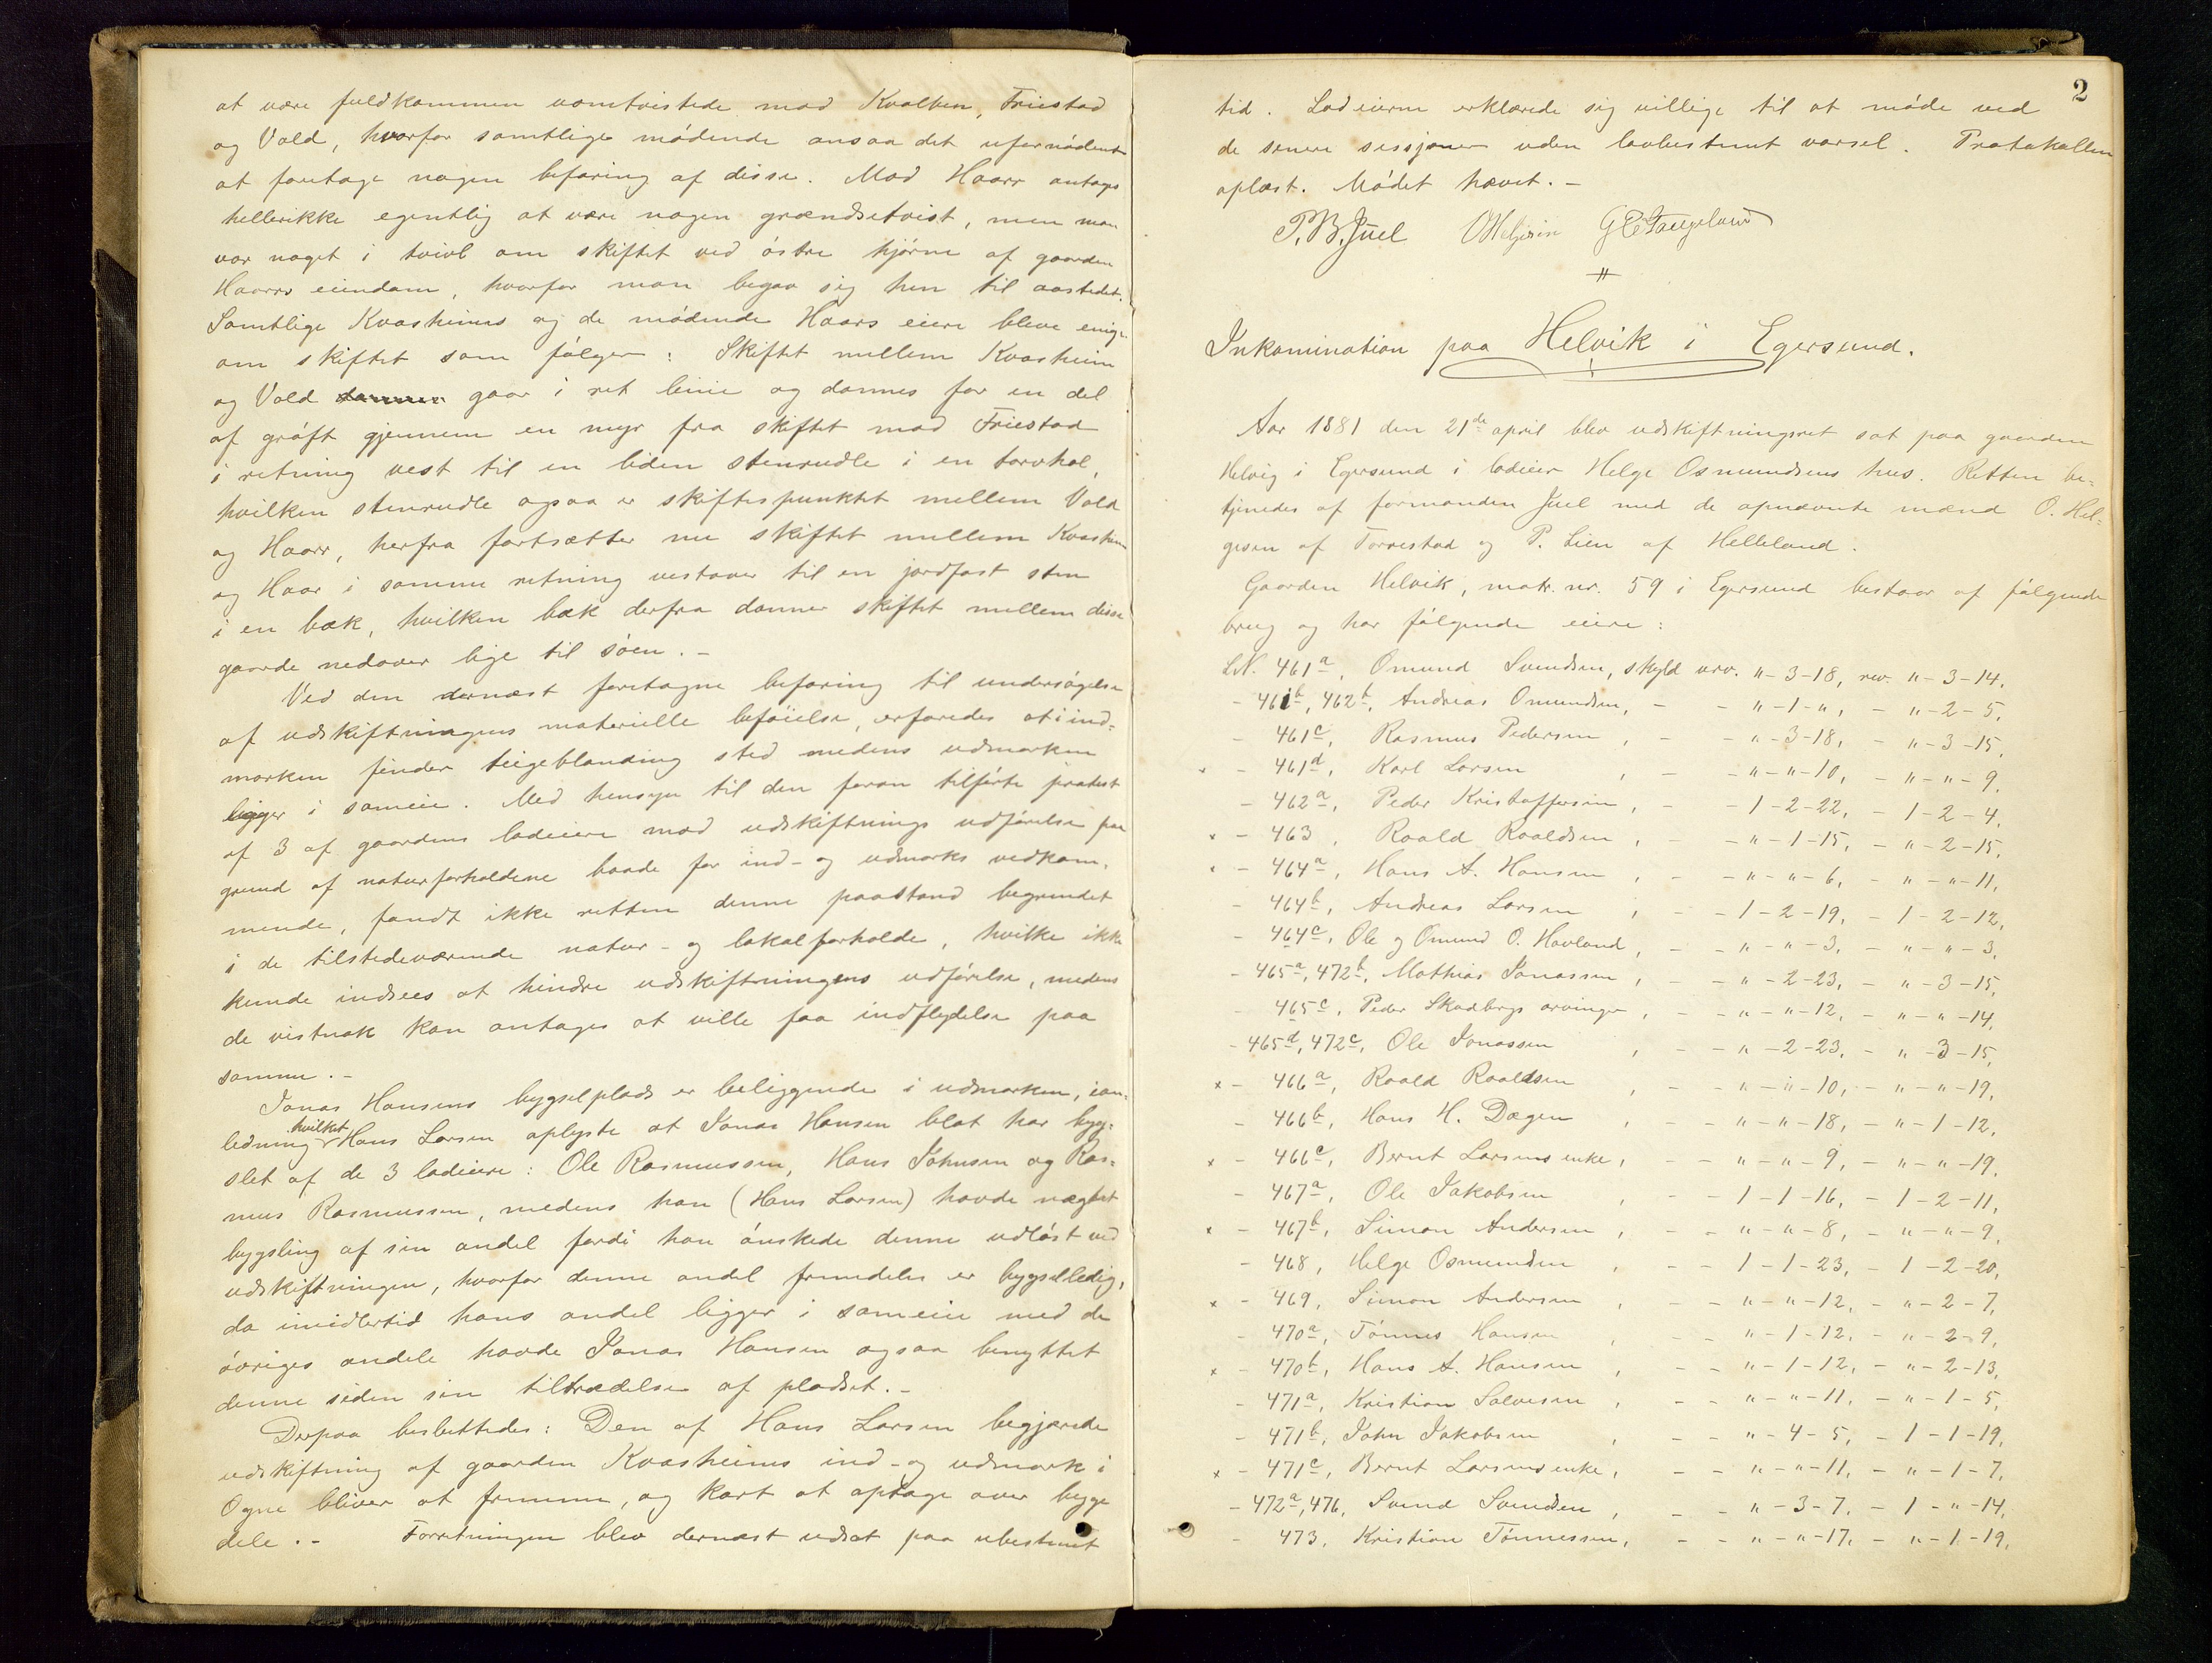 at være fuldkommen uomtvistede mod Kvalben, Friestad
og Vold, hvorfor samtlige mødende ansaa det ufornødent
at foretage nogen befaring af disse. Mod Haarr antages
hellerikke egentlig at være nogen grændsetvist, men man
var noget i tvivl om skiftet ved østre hjørne af gaarden
Haarrs eiendom, hvorfor man begav sig hen til aastedet.
Samtlige Kvasheims og de mødende Haars eiere bleve enige
om skiftet som følger: Skiftet mellem Kvasheim
og Vold gaar i ret linie og dannes for en del
af grøft gjennem en myr fra skiftet mod Friestad
i retning vest til en liden stenrudle i en torvhol,
hvilken stenrudle ogsaa er skiftespunktet mellem Vold
og Haarr, herfra fortsætter nu skiftet mellem Kvasheim
og Haar i samme retning vestover til en jordfast sten
i en bæk, hvilken bæk derfra danner skiftet mellem disse
gaarde nedover lige til søen. -
Ved den dernæst foretagne befaring til undersøgelse
af udskiftningens materielle beføielse, erfaredes at i ind-
marken finder teigeblanding sted medens udmarken
ligger i sameie. Med hensyn til den foran tilførte protest
af 3 af gaardens lodeiere mod udskiftnings udførelse paa
grund af naturforholdene baade for ind- og udmarks vedkom-
mende, fandt ikke retten denne paastand begrundet
i de tilstedeværende natur- og lokalforholde, hvilke ikke
kunde indsees at hindre udskiftningens udførelse, medens
de vistnok kan antages at ville faa indflydelse paa
samme. -
Jonas Hansens bygselplads er beliggende i udmarken, i an-
ledning hvilket Hans Larsen oplyste at Jonas Hansen blot har byg-
slet af de 3 lodeiere: Ole Rasmussen, Hans Johnsen og Ras-
mus Rasmussen, medens han (Hans Larsen) havde nægtet
bygsling af sin andel fordi han ønskede denne udløst ved
udskiftningen, hvorfor denne andel fremdeles er bygselledig,
da imidlertid hans andel ligger i sameie med de
øvriges andele havde Jonas Hansen ogsaa benyttet
denne siden sin tiltrædelse af pladset. -
Derpaa besluttedes: Den af Hans Larsen begjærede
udskiftning af gaarden Kvasheims ind- og udmark i
Ogne bliver at fremme, og kart at optage over begge
dele. - Forretningen blev dernæst udsat paa ubestemt
2
tid. Lodeierne erklærede sig villige til at møde ved
de senere sessjoner uden lovbestemt varsel. Protokollen
oplæst. Mødet hævet. -
P. B. Juel O Helgesen
Inkamination paa Helvik i Egersund.
Aar 1881 den 21de april blev udskiftningsret sat paa gaarden
Helvig i Egersund i lodeier Helge Osmundsens hus. Retten be-
tjenedes af formanden Juel med de opnævnte mænd O. Hel-
gesen af Torrestad og P. Lien af Helleland.
Gaarden Helvik, matr. nr. 59 i Egersund bestaar af følgende
brug og har følgende eiere:
LN. 461a, Omund Svendsen, skyld urv. "-3-18, rev. "-3-14.
- 461b, 462b, Andreas Omundsen, - - "-1-", - "-2-5.
- 461c, Rasmus Pedersen, - - "-3-18, - "-3-15.
x - 461d, Karl Larsen, - - "-"-10, - "-"-9.
- 462a, Peder Kristoffersen, - - 1-2-22, - 1-2-4.
x - 463, Roald Roaldsen, - - "-1-15, - "-2-15.
x - 464a, Hans A. Hansen, - - "-"-6, - "-"-11.
- 464b, Andreas Larsen, - - 1-2-19, - 1-2-12.
- 464c, Ole og Omund O. Havland, - - "-"-3, - "-"-3.
- 465a, 472b, Mathias Jonassen, - - "-2-23, - "-3-15.
- 465c, Peder Skadbergs arvinger, - - "-"-12, - "-"-14.
- 465d, 472c, Ole Jonassen, - - "-2-23, - "-3-15.
x - 466a, Roald Roaldsen, - - "-"-10, - "-"-19.
- 466b, Hans H. Dagen, - - "-"-18, - "-1-12.
x - 466c, Bernt Larsens enke, - - "-"-9, - "-"-19.
- 467a, Ole Jakobsen, - - 1-1-16, - 1-2-11.
x - 467b, Simon Andersen, - - "-"-8, - "-"-9.
- 468, Helge Osmundsen, - - 1-1-23, - 1-2-20.
x - 469, Simon Andersen, - - "-"-12, - "-2-7.
- 470a, Tønnes Hansen, - - "-1-12, - "-2-9.
x - 470b, Hans A. Hansen, - - "-1-12, - "-2-13.
- 471a, Kristian Salvesen, - - "-"-11, - "-1-5.
- 471b, John Jakobsen, - - "-4-5, - 1-1-19.
x - 471c, Bernt Larsens enke, - - "-"-11, - "-1-7.
- 472a, 476, Svend Svendsen, - - "-3-7, - 1-"-14.
- 473, Kristian Tønnessen, - - "-"-17, - "-1-19.